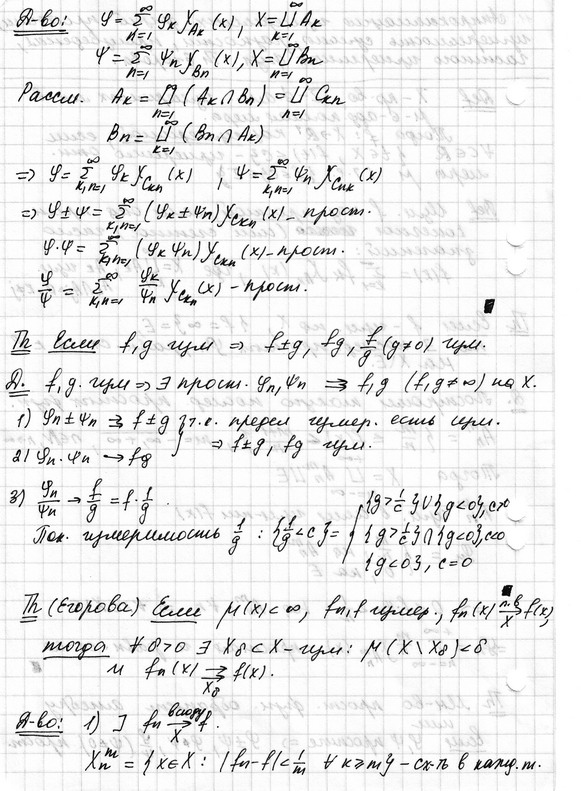 Д-во: φ = ∑_{n=1}^{∞} φ_k χ_{A_k}(x), X = ∐_{k=1}^{∞} A_k
ψ = ∑_{n=1}^{∞} ψ_n χ_{B_n}(x), X = ∐_{n=1}^{∞} B_n
Рассм. A_k = ∐_{n=1}^{∞} (A_k ∩ B_n) = ∐_{n=1}^{∞} C_{kn}
B_n = ∐_{k=1}^{∞} (B_n ∩ A_k)
⇒ φ = ∑_{k,n=1}^{∞} φ_k χ_{C_{kn}}(x), ψ = ∑_{k,n=1}^{∞} ψ_n χ_{C_{nk}}(x)
⇒ φ ± ψ = ∑_{k,n=1}^{∞} (φ_k ± ψ_n) χ_{C_{kn}}(x) – прост.
φ·ψ = ∑_{k,n=1}^{∞} (φ_k ψ_n) χ_{C_{kn}}(x) – прост.
φ/ψ = ∑_{k,n=1}^{∞} φ_k/ψ_n χ_{C_{kn}}(x) – прост.
Th Если f, g изм ⇒ f±g, fg, f/g (g≠0) изм.
Д. f, g изм ⇒ ∃ прост. φ_n, ψ_n ⇉ f, g (f, g ≠ ∞) на X.
1) φ_n ± ψ_n ⇉ f ± g } т.к. предел измер. есть изм.
2) φ_n · ψ_n → fg } ⇒ f±g, fg изм.
3) φ_n/ψ_n → f/g = f · 1/g.
Пок. измеримость 1/g : {1/g < c} = { {g > 1/c} ∪ {g < 0}, c>0
{g > 1/c} ∩ {g < 0}, c<0
{g < 0}, c = 0
Th (Егорова) Если μ(X) < ∞, f_n, f измер., f_n(x) →^{п.в.}_{X} f(x),
тогда ∀ δ > 0 ∃ X_δ ⊂ X – изм: μ(X \ X_δ) < δ
и f_n(x) ⇉_{X_δ} f(x).
Д-во: 1) ] f_n →^{всюду}_{X} f.
X_n^m = {x ∈ X : |f_n - f| < 1/m ∀ k ≥ m} – сх-ть в кажд. т.